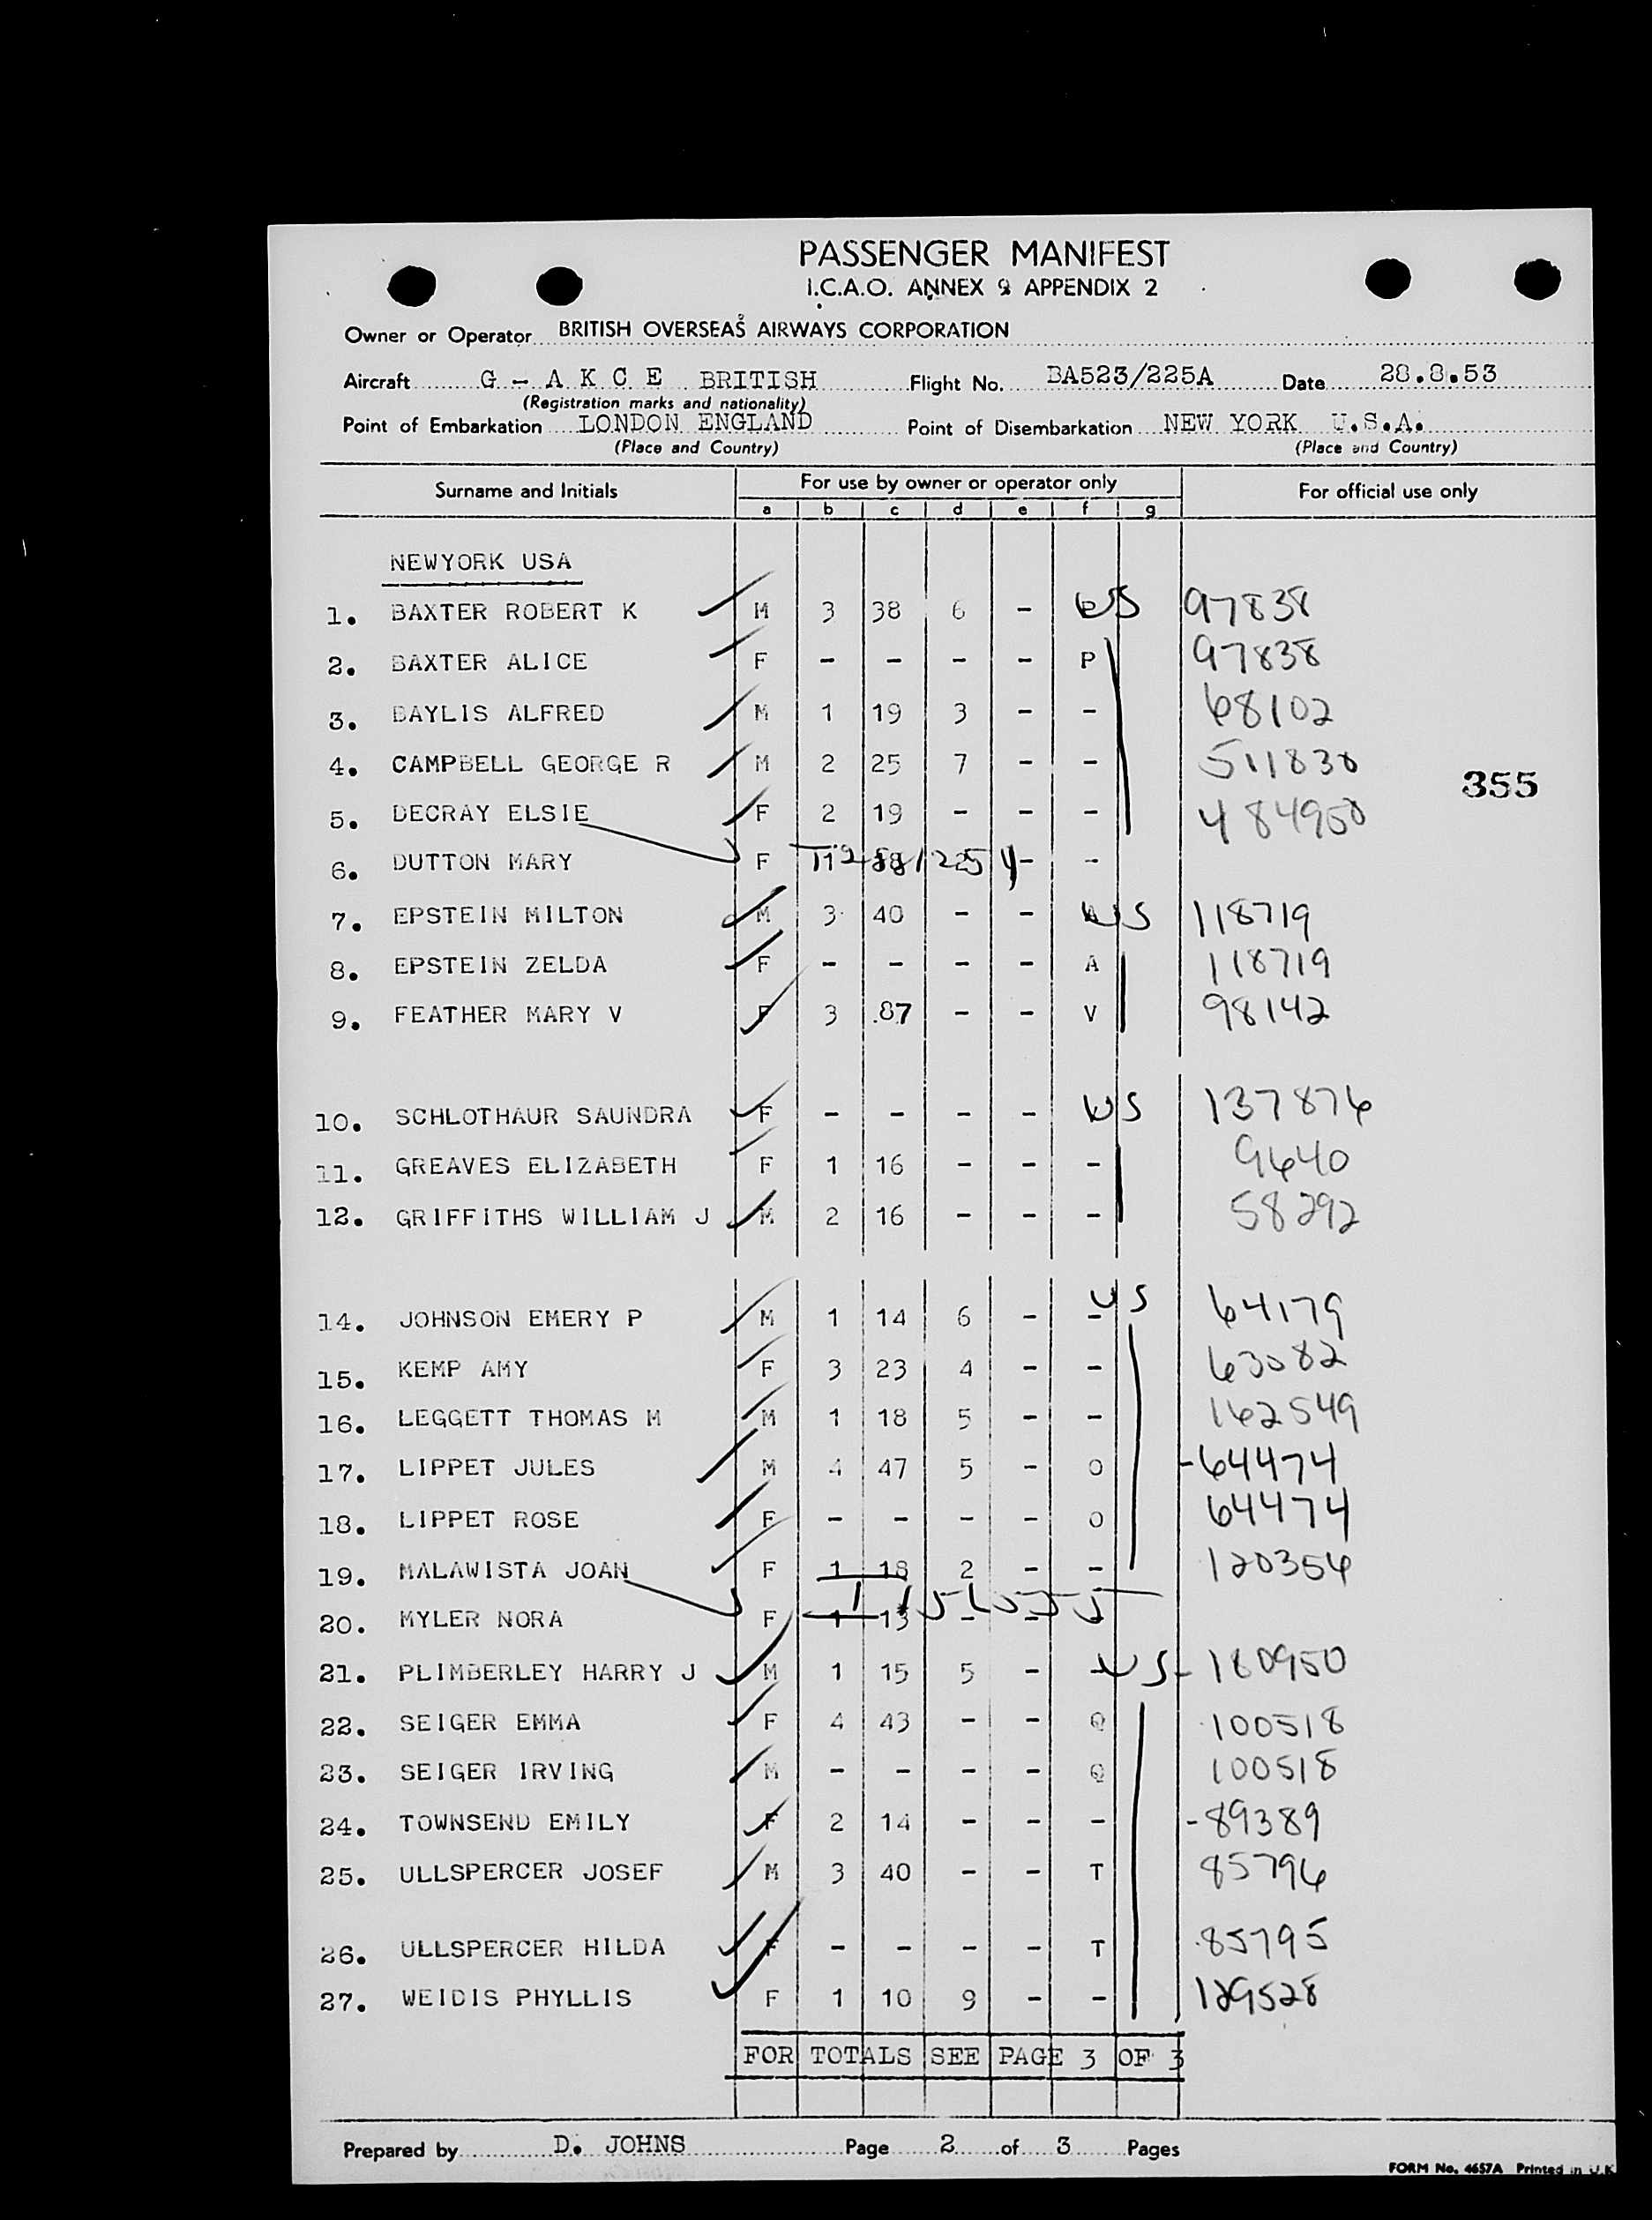 PASSENGER MANIFEST
I.C.A.O. ANNEX 9 APPENDIX 2
Owner or Operator BRITISH OVERSEAS AIRWAYS CORPORATION
Aircraft G - A K C E BRITISH Flight No. BA523/225A Date 28.8.53
(Registration marks and nationality)
Point of Embarkation LONDON ENGLAND Point of Disembarkation NEW YORK U.S.A.
(Place and Country) (Place and Country)
Surname and Initials For use by owner or operator only For official use only
a b c d e f g
NEWYORK USA
1. BAXTER ROBERT K M 3 38 6 - US 97838
2. BAXTER ALICE F - - - - P 97838
3. BAYLIS ALFRED M 1 19 3 - - 68102
4. CAMPBELL GEORGE R M 2 25 7 - - 511838
355
5. DECRAY ELSIE F 2 19 - - - 484950
6. DUTTON MARY F - -
7. EPSTEIN MILTON M 3 40 - - US 118719
8. EPSTEIN ZELDA F - - - - A 118719
9. FEATHER MARY V F 3 87 - - V 98142
10. SCHLOTHAUR SAUNDRA F - - - - US 137876
11. GREAVES ELIZABETH F 1 16 - - - 9640
12. GRIFFITHS WILLIAM J M 2 16 - - - 58292
14. JOHNSON EMERY P M 1 14 6 - - US 64179
15. KEMP AMY F 3 23 4 - - 63082
16. LEGGETT THOMAS M M 1 18 5 - - 162549
17. LIPPET JULES M 4 47 5 - O -64474
18. LIPPET ROSE F - - - - O 64474
19. MALAWISTA JOAN F 1 18 2 - - 120356
20. MYLER NORA F 1 13 - -
21. PLIMBERLEY HARRY J M 1 15 5 - - US- 180950
22. SEIGER EMMA F 4 43 - - Q 100518
23. SEIGER IRVING M - - - - Q 100518
24. TOWNSEND EMILY F 2 14 - - - -89389
25. ULLSPERCER JOSEF M 3 40 - - T 85796
26. ULLSPERCER HILDA F - - - - T 85795
27. WEIDIS PHYLLIS F 1 10 9 - - 129528
FOR TOTALS SEE PAGE 3 OF 3
Prepared by D. JOHNS Page 2 of 3 Pages
FORM No. 4657A Printed in U.K